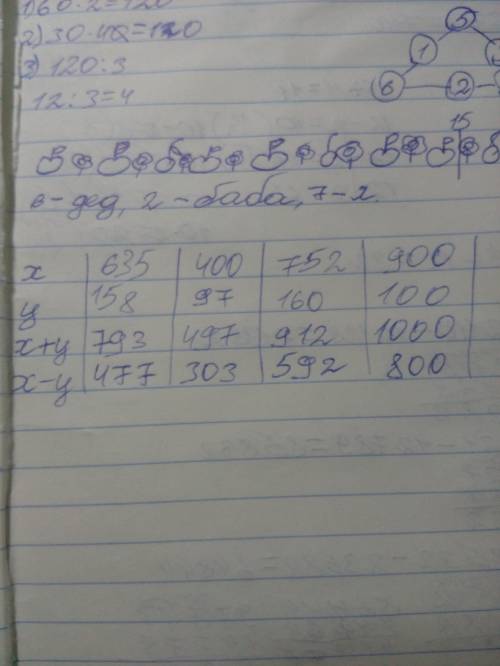 1) 60 · 2 = 120
2) 30 · 4 = 120
3) 120 : 3
12 : 3 = 4
5
1
6 2
15
в - дед, 2 - баба, 7 - я.
x | 635 | 400 | 752 | 900
y | 158 | 97 | 160 | 100
x+y | 793 | 497 | 912 | 1000
x-y | 477 | 303 | 592 | 800